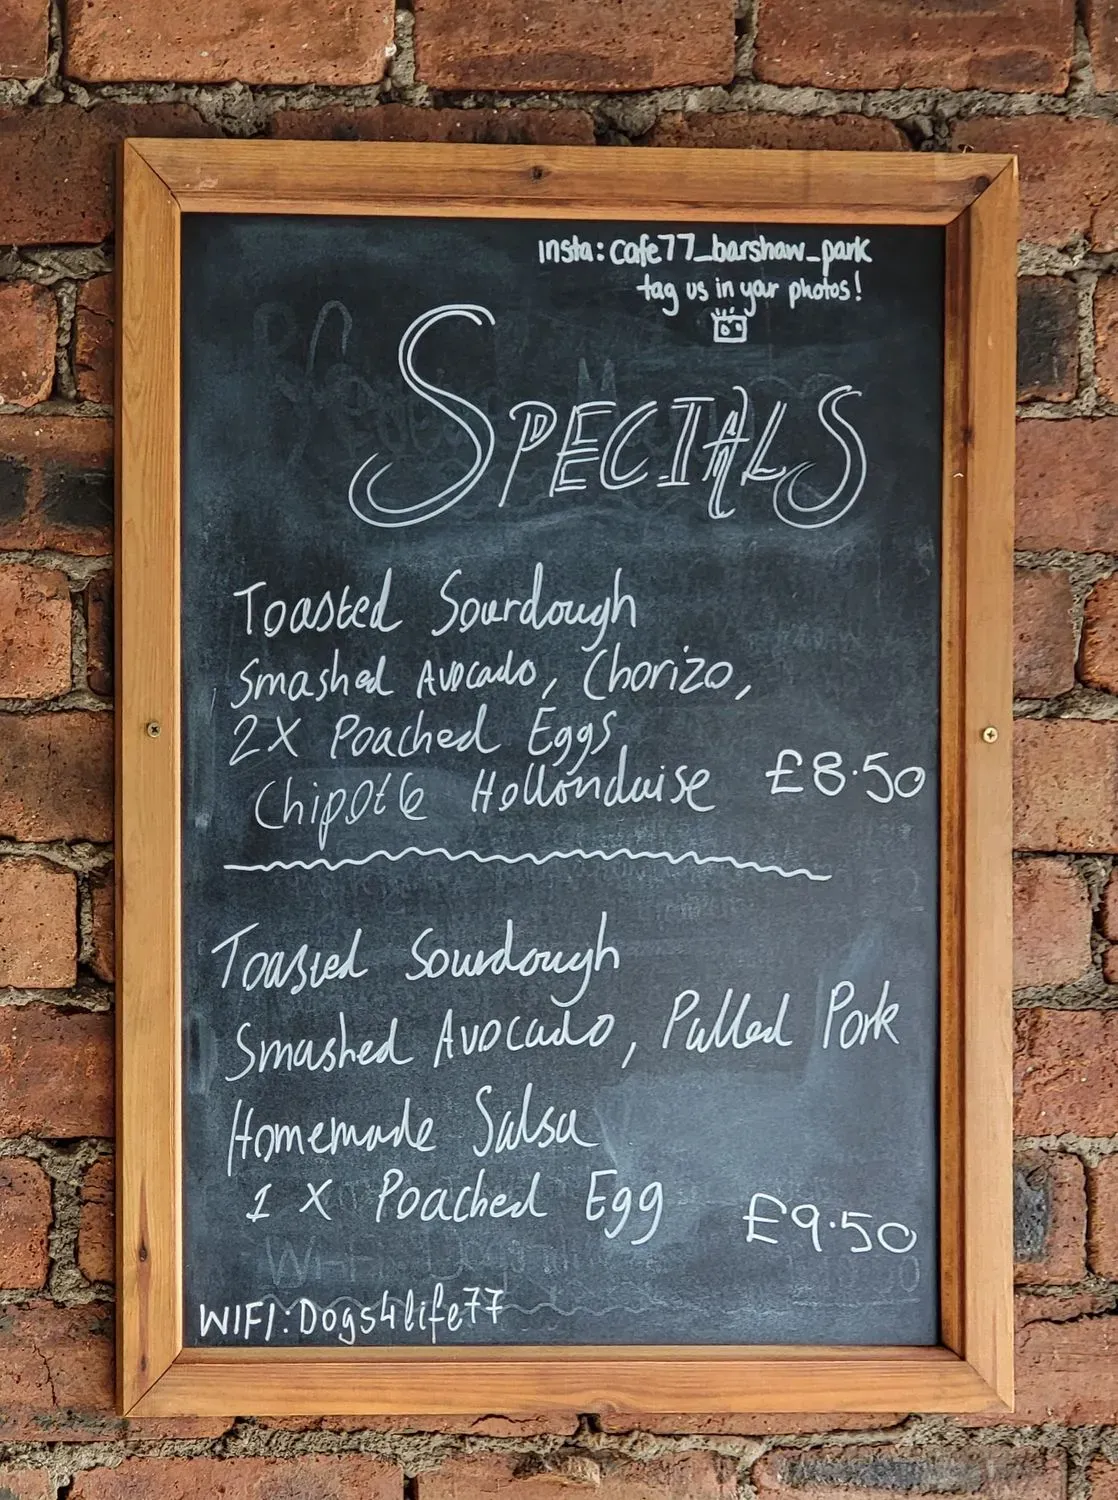 Insta: cafe77_barshaw_park
tag us in your photos!
SPECIALS
Toasted Sourdough
Smashed Avocado, Chorizo,
2X Poached Eggs,
Chipotle Hollondaise £8.50
Toasted Sourdough
Smashed Avocado, Pulled Pork
Homemade Salsa
1 X Poached Egg £9.50
WIFI: Dogs4life77